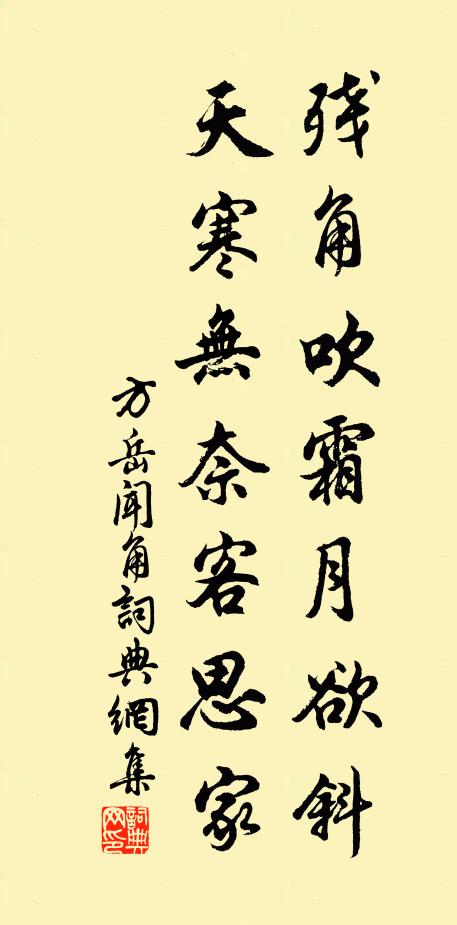 残角吹霜月欲斜
天寒無奈客思家
方岳闻角詞典網集
詞典
网印